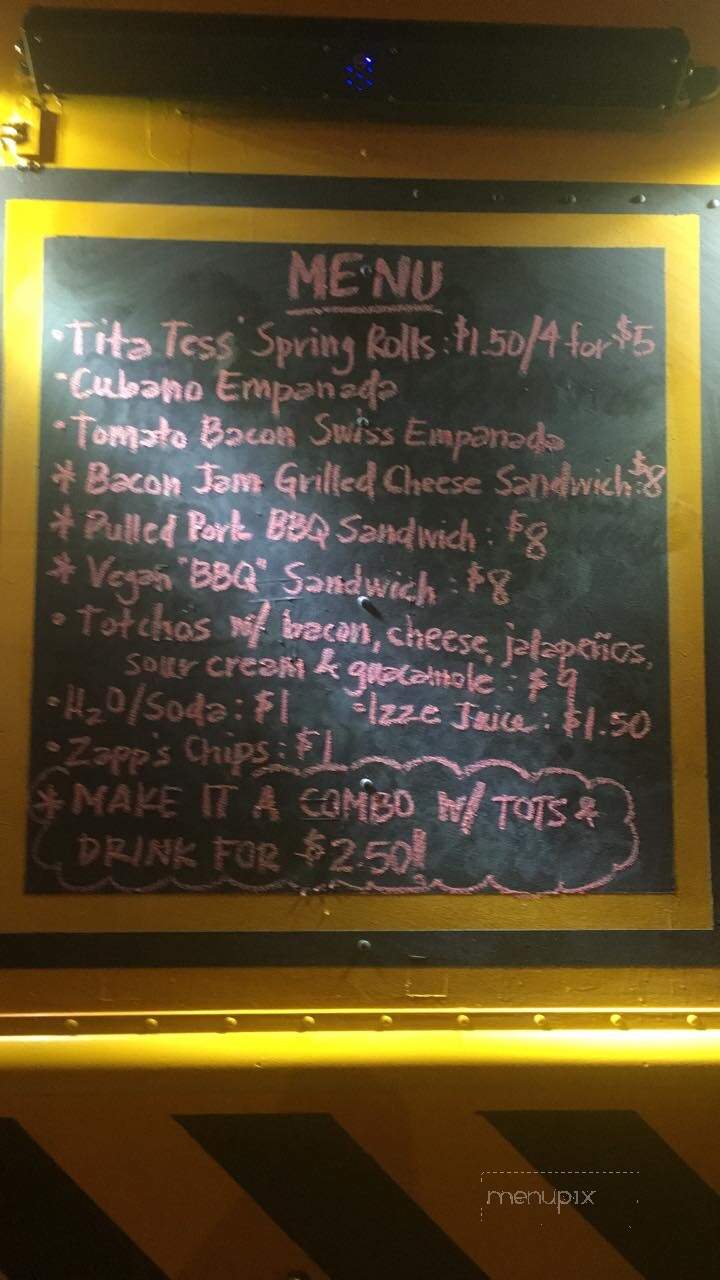 MENU
•Tita Tess' Spring Rolls: $1.50/4 for $5
•Cubano Empanada
•Tomato Bacon Swiss Empanada
* Bacon Jam Grilled Cheese Sandwich: $8
* Pulled Pork BBQ Sandwich: $8
* Vegan "BBQ" Sandwich: $8
• Totchos w/ bacon, cheese, jalapeños,
sour cream & guacamole: $9
•H2O/Soda: $1 •Izze Juice: $1.50
•Zapp's Chips: $1
* MAKE IT A COMBO W/ TOTS &
DRINK FOR $2.50!
menupix